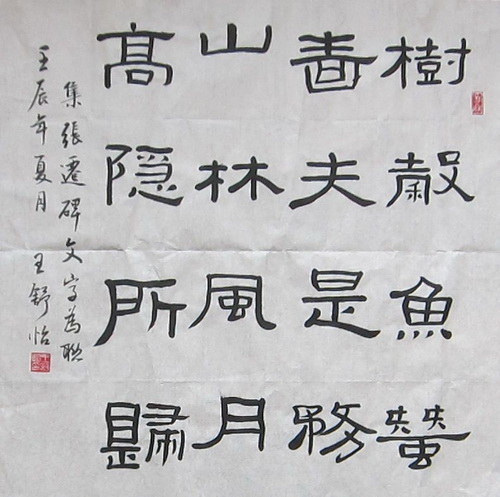 樹穀魚蠶
嗇夫是務
山林風月
髙隐所歸
集張遷碑文字為聯
壬辰年夏月 王舒怡